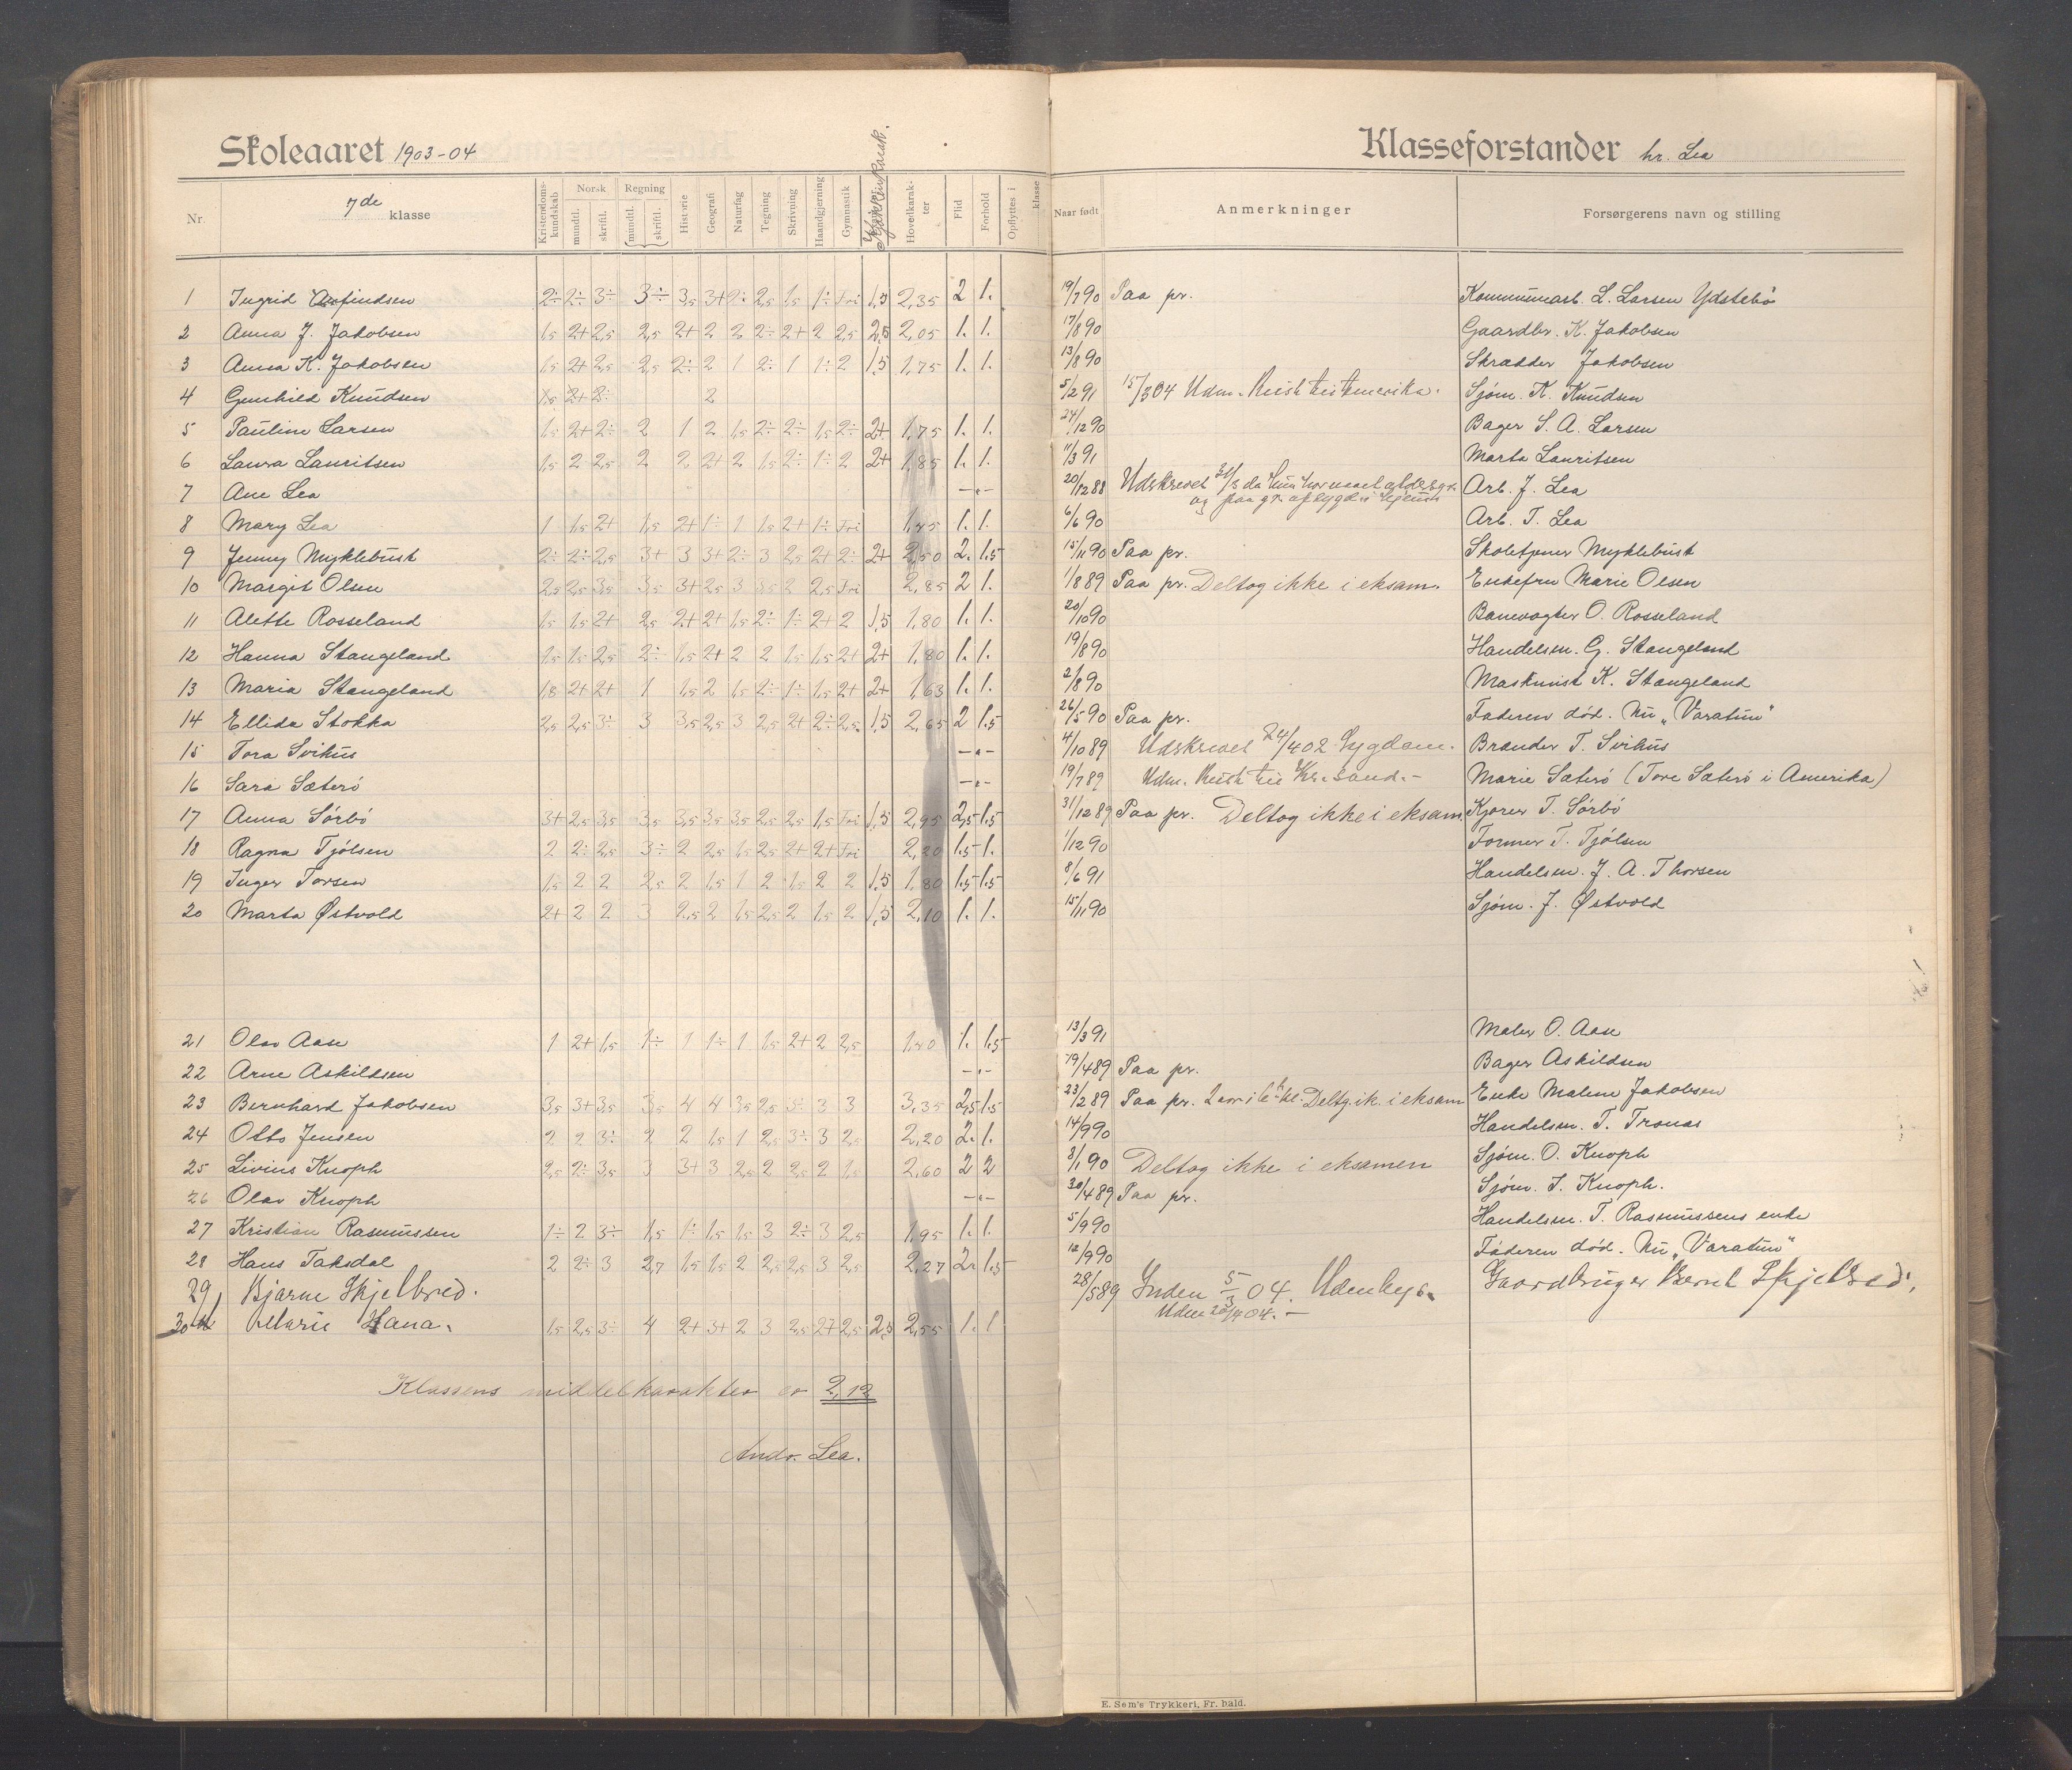 Skoleaaret 1903-04
Klasseforstander hr. Lea
Nr.
7de klasse
Kristendoms-kundskab
Norsk mundtl. skriftl.
Regning mundtl. skriftl.
Historie
Geografi
Naturfag
Tegning
Skrivning
Haandgjerning
Gymnastik
Hovedkarak-ter
Flid
Forhold
Opflyttes i klasse
Naar født
Anmerkninger
Forsørgerens navn og stilling
1 Ingrid Arfindsen 2÷ 2÷ 3÷ 3÷ 3,5 3+ 2÷ 2,5 1,5 1÷ Fri 1,5 2,35 2 1. 19/7 90 Paa pr. Kommunearb. L. Larsen Ydstebø
2 Anna J. Jakobsen 1,5 2+ 2,5 2,5 2+ 2 2 2÷ 2+ 2 2,5 2,5 2,05 1. 1. 17/8 90 Gaardbr. K. Jakobsen
3 Anna K. Jakobsen 1,5 2+ 2,5 2,5 2÷ 2 1 2÷ 1 1÷ 2 1,5 1,75 1. 1. 13/8 90 Skrædder Jakobsen
4 Gunhild Knudsen 1,5 2+ 2÷ 2 5/2 91 15/3 04 Udm. Reist til Amerika. Sjøm. K. Knudsen
5 Pauline Larsen 1,5 2+ 2÷ 2 1 2 1,5 2÷ 2÷ 1,5 2÷ 2+ 1,75 1. 1. 24/12 90 Bager S. A. Larsen
6 Laura Lauritsen 1,5 2 2,5 2 2 2+ 2 1,5 2÷ 1÷ 2 2+ 1,85 1. 1. 11/3 91 Marta Lauritsen
7 Ane Lea —"— 20/12 88 Udskrevet 31/3 da hun har naaet aldersgr. Arb. J. Lea
og paa gr. af sygd. i hjem
8 Mary Lea 1 1,5 2+ 1,5 2+ 1÷ 1 1,5 2+ 1÷ Fri 1,45 1. 1. 6/6 90 Arb. T. Lea
9 Jenny Myklebust 2÷ 2÷ 2,5 3+ 3 3+ 2÷ 3 2,5 2+ 2÷ 2+ 2,50 2. 1.5 15/11 90 Paa pr. Skoletjener Myklebust
10 Margit Olsen 2,5 2,5 3,5 3,5 3+ 2,5 3 3,5 2 2,5 Fri 2,85 2 1. 1/8 89 Paa pr. Deltog ikke i eksam. Enkefru Marie Olsen
11 Alette Rosseland 1,5 1,5 2+ 2,5 2+ 2+ 1,5 2÷ 1÷ 2+ 2 1,5 1,80 1. 1. 20/10 90 Banevogter O. Rosseland
12 Hanna Stangeland 1,5 1,5 2,5 2÷ 1,5 2+ 2 2 1,5 1,5 2+ 2+ 1,80 1. 1. 19/8 90 Handelsm. G. Stangeland
13 Maria Stangeland 1,8 2+ 2+ 1 1,5 2 1,5 2÷ 1÷ 1,5 2+ 2+ 1,63 1. 1. 2/8 90 Maskinist K. Stangeland
14 Ellida Stokka 2,5 2,5 3÷ 3 3,5 2,5 3 2,5 2+ 2÷ 2,5 1,5 2,65 2 1.5 26/5 90 Paa pr. Faderen død. Nu „Varatun"
15 Tora Svihus —"— 4/10 89 Udskrevet 24/4 02 Sygdom. Brander T. Svihus
16 Sara Sæterø —"— 19/7 89 Udm. Reist til Kr.sand.- Marie Sæterø (Tore Sæterø i Amerika)
17 Anna Sørbø 3+ 2,5 3,5 3,5 3,5 3,5 3,5 2,5 2,5 1,5 Fri 1,5 2,95 2,5 1.5 31/12 89 Paa pr. Deltog ikke i eksam. Kjører T. Sørbø
18 Ragna Tjølsen 2 2÷ 2,5 3÷ 2 2,5 1,5 2,5 2+ 2+ Fri 2,20 1.5 1. 1/12 90 Former T. Tjølsen
19 Inger Torsen 1,5 2 2 2,5 2 1,5 1 2 1,5 2 2 1,5 1,80 1.5 1.5 8/6 91 Handelsm. J. A. Thorsen
20 Marta Østvold 2+ 2 2 3 2,5 2 1,5 2,5 2 1,5 2 1,5 2,10 1. 1. 15/11 90 Sjøm. J. Østvold
21 Olav Aase 1 2+ 1,5 1÷ 1 1÷ 1 1,5 2+ 2 2,5 1,50 1. 1.5 13/3 91 Maler O. Aase
22 Arne Askildsen —"— 19/4 89 Paa pr. Bager Askildsen
23 Bernhard Jakobsen 3,5 3+ 3,5 3,5 4 4 3,5 2,5 3÷ 3 3 3,35 2,5 1.5 23/2 89 Paa pr. 2 aar i 6te kl. Deltog ik. i eksam Enke Malene Jakobsen
24 Otto Jensen 2 2 3÷ 2 2 1,5 1 2,5 3÷ 3 2,5 2,20 2. 1. 14/9 90 Handelsm. T. Tronas
25 Livius Knoph 2,5 2÷ 3,5 3 3+ 3 2,5 2 2,5 2 1,5 2,60 2 2 3/1 90 Deltog ikke i eksamen Sjøm. O. Knoph
26 Olav Knoph —"— 30/4 89 Paa pr. Sjøm. I. Knoph.
27 Kristian Rasmussen 1÷ 2 3÷ 1,5 1÷ 1,5 1,5 3 2÷ 3 2,5 1,95 1. 1. 5/9 90 Handelsm. T. Rasmussens enke
28 Hans Taksdal 2 2÷ 3 2,7 1,5 1,5 2 2,5 2,5 3 2,5 2,27 2. 1.5 12/9 90 Faderen død. Nu „Varatun"
29 Bjarne Skjelbred. 28/5 89 Inden 5/3 04. Udenbys. Gaardbruger Bernt Skjelbred.
Udm 20/4 04. —
30 Marie Hana. 1,5 2,5 3÷ 4 2+ 3+ 2 3 2,5 2+ 2,5 2,5 2,55 1. 1
Klassens middelkarakter er 2,12
Andr. Lea.
E. Sem's Trykkeri, Fr. hald.